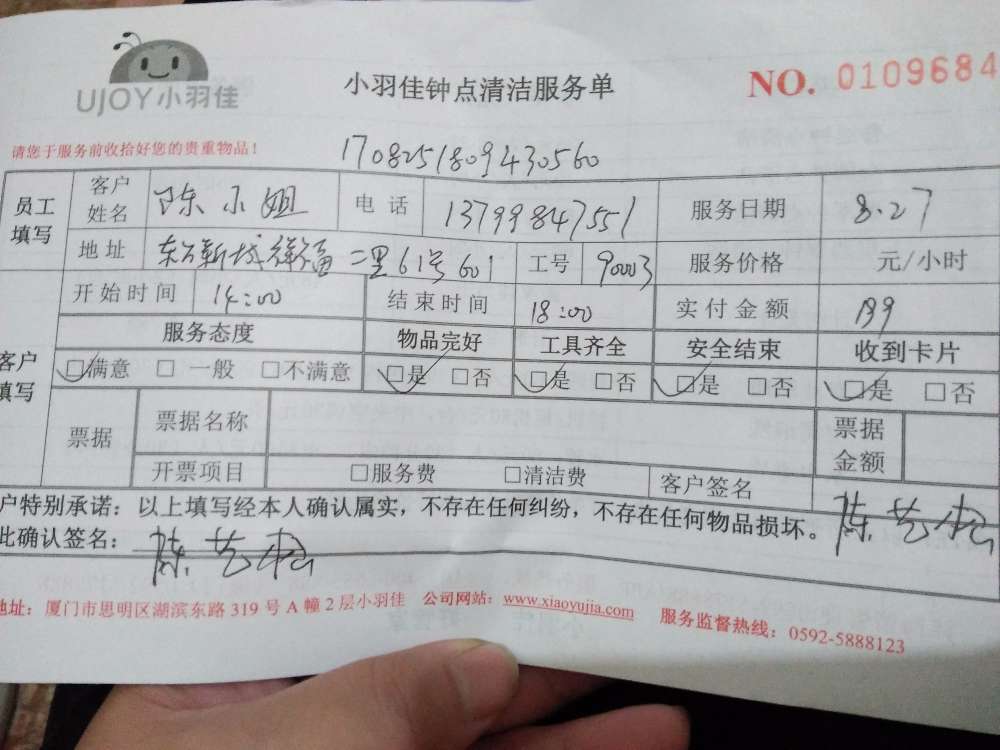 UJOY小羽佳
小羽佳钟点清洁服务单
NO. 0109684
请您于服务前收拾好您的贵重物品！
1708251809430560
员工填写 客户姓名 陈小姐 电话 13799847551 服务日期 8.27
地址 新城 二里61号601 工号 90003 服务价格 元/小时
客户填写 开始时间 14:00 结束时间 18:00 实付金额 199
服务态度 物品完好 工具齐全 安全结束 收到卡片
□满意 □一般 □不满意 □是 □否 □是 □否 □是 □否 □是 □否
票据 票据名称 票据金额
开票项目 □服务费 □清洁费 客户签名
户特别承诺：以上填写经本人确认属实，不存在任何纠纷，不存在任何物品损坏。
此确认签名：
地址：厦门市思明区湖滨东路319号A幢2层小羽佳 公司网站：www.xiaoyujia.com 服务监督热线：0592-5888123